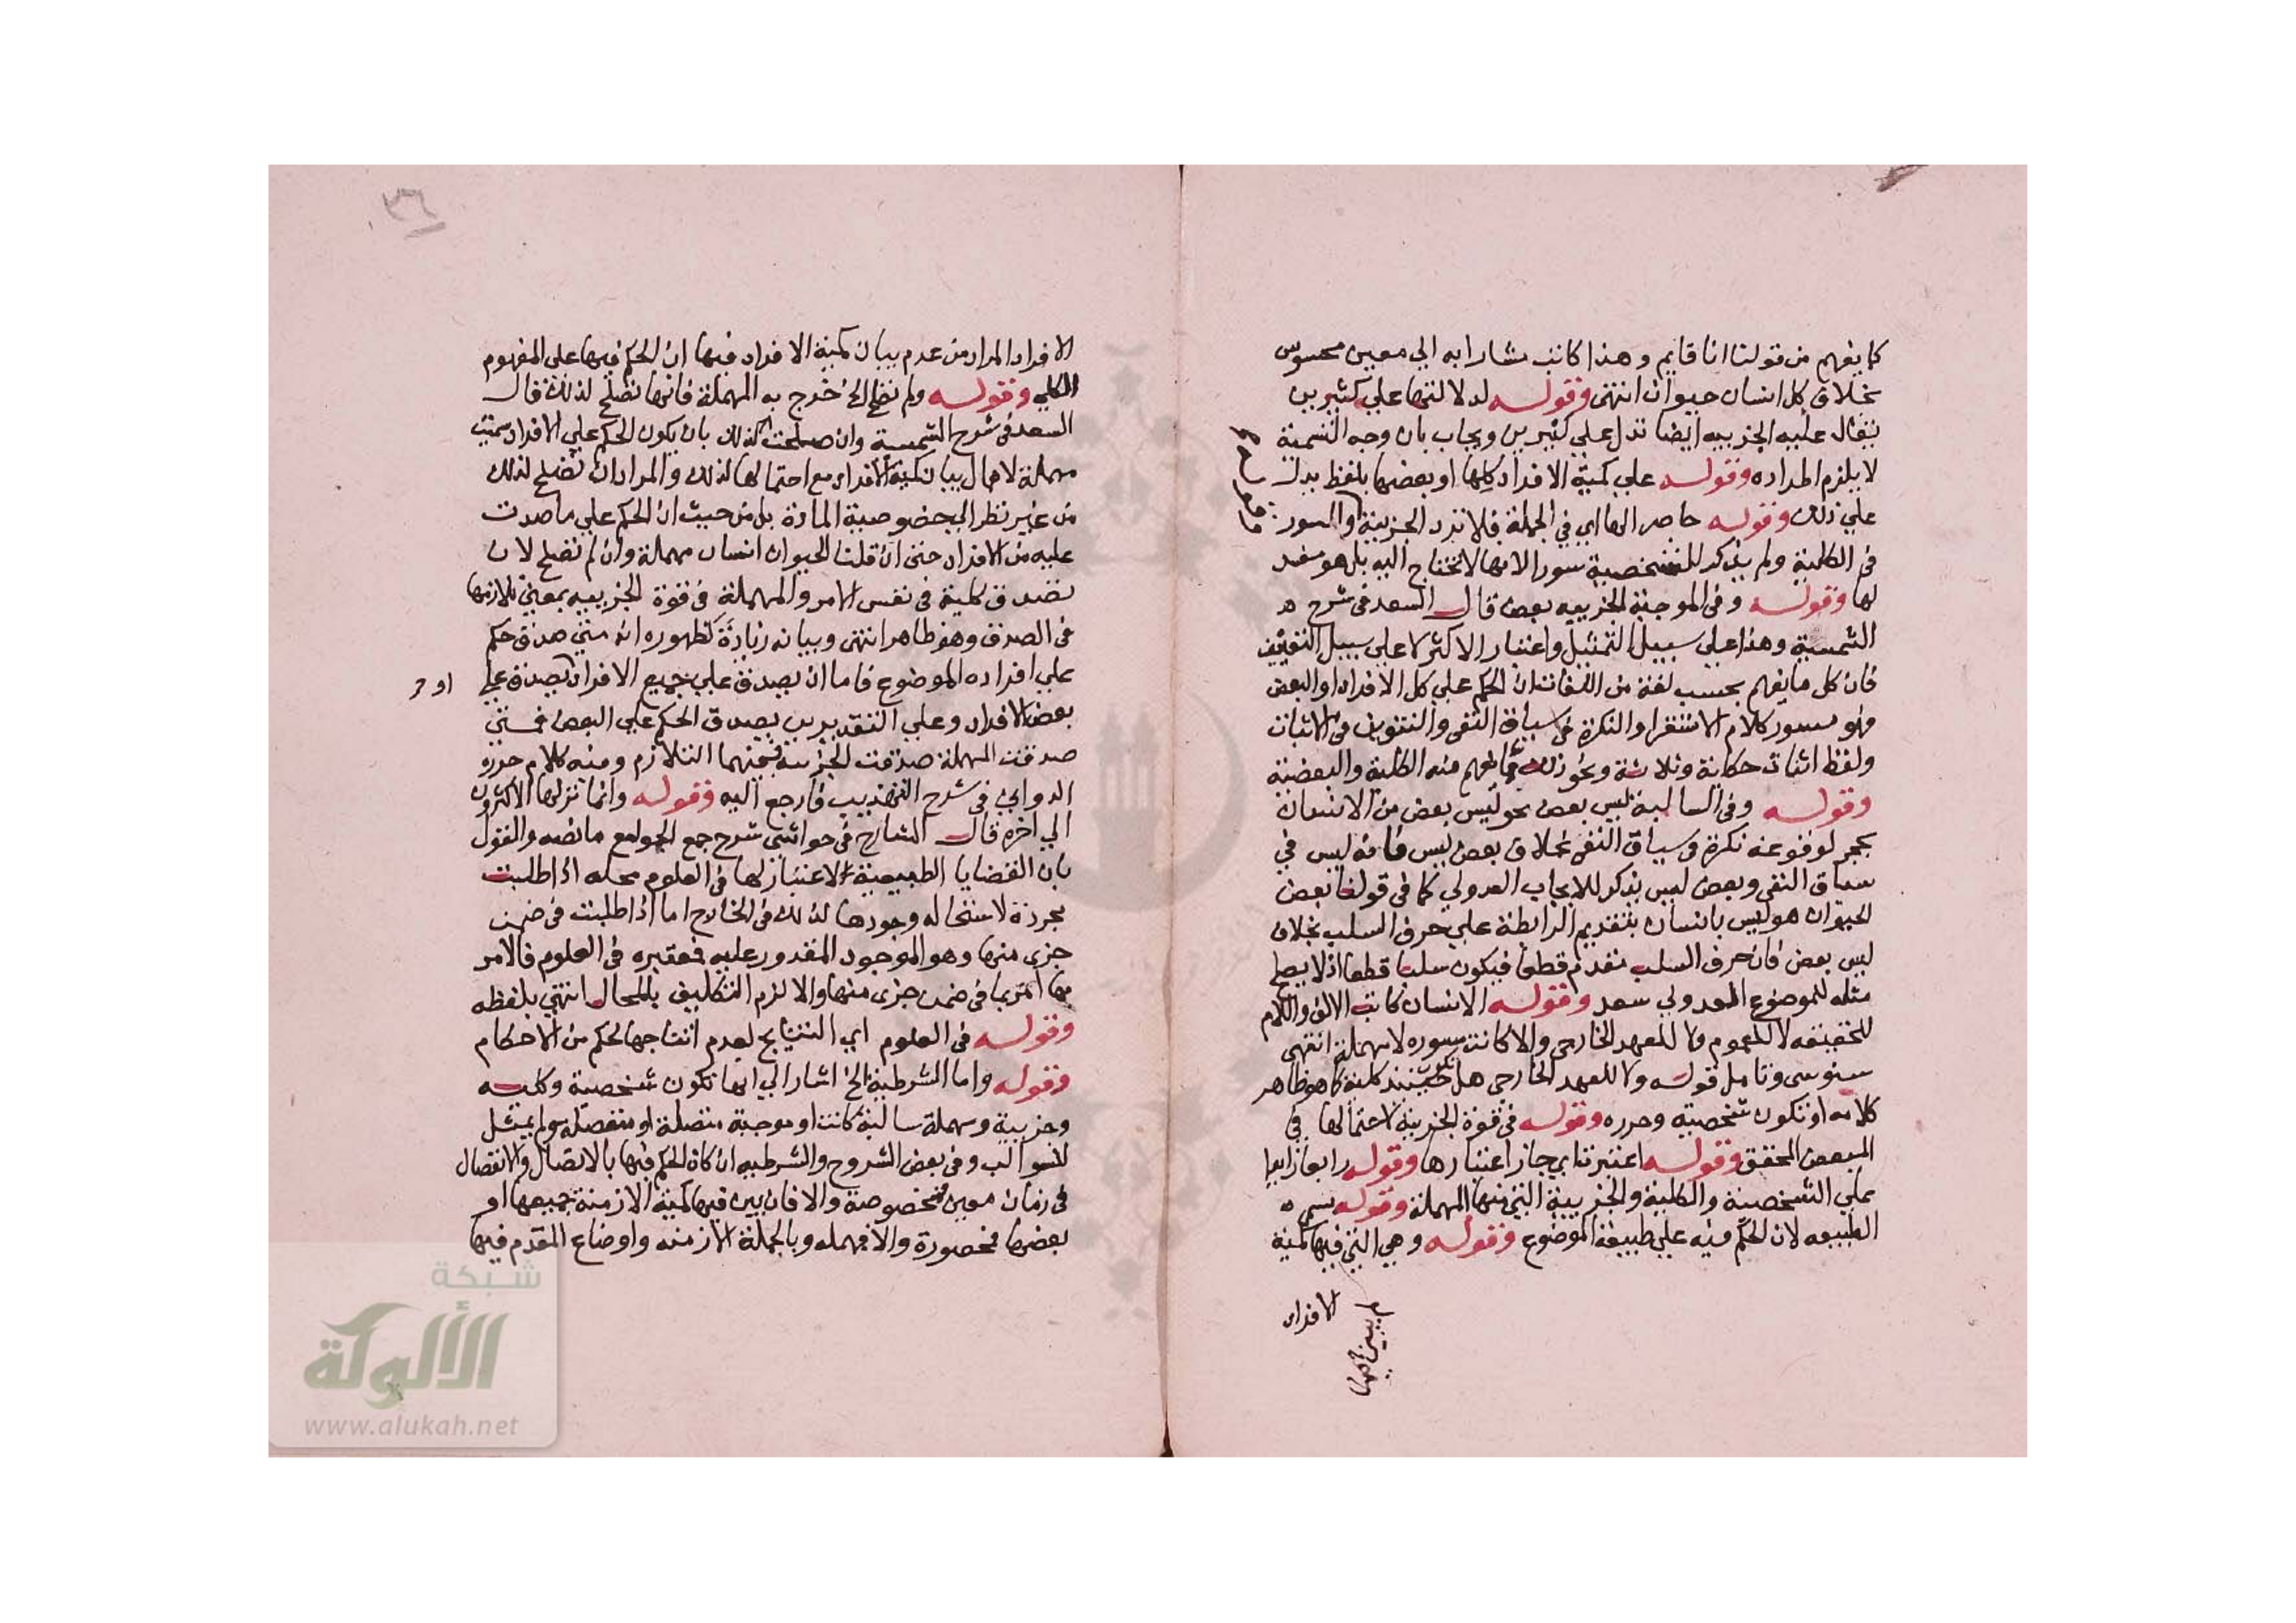 كما يفهم من قولنا انا قايم وهذا كاتب مشارا به الي معين محسوس
بخلاف كل انسان حيوان انتهى وقوله لدلالتها علي كثيرين
يقال عليه الجزييه ايضا تدل علي كثيرين ويجاب بان وجه التسمية
لا يلزم اطراده وقوله علي كمية الافراد كلها او بعضها بلفظ يدل
علي ذلك وقوله حاصرا لها اي في الجملة فلا ترد الجزيية والسور
في الكلية ولم يذكر للشخصية سورا لانها لا تحتاج اليه بل هو مفسد
لها وقوله وفى الموجبة الجزييه بعض قال السعد فى شرح
الشمسية وهذا علي سبيل التمثيل واعتبار الاكثر لا علي سبيل التعيين
فان كل ما يفهم بحسب لغة من اللغات ان الحكم علي كل الافراد او البعض
فهو سور كلام الاستغراق والنكرة في سياق النفي والتنوين في الاثبات
ولفظ اثنان حكاية وثلاثة ونحو ذلك مما يفهم منه الكلية والبعضية
وقوله وفى السالبة ليس بعض نحو ليس بعض من الانسان
بحجر لوقوعه نكرة في سياق النفي بخلاف بعض ليس فانه ليس في
سياق النفي وبعض ليس يذكر للايجاب العدولي كما في قولنا بعض
الحيوان هو ليس بانسان بتقديم الرابطة علي حرف السلب بخلاف
ليس بعض فان حرف السلب مقدم قطعا فيكون سلبا قطعا اذ لا يصلح
مثله للموضوع المعدولي سعد وقوله الانسان كاتب الالف واللام
للحقيقه لا للعموم ولا للعهد الخارجي والا كانت مسوره لا مهملة انتهى
سنوسى وتامل قوله ولا للعهد الخارجي هل تكون حينئذ كلية كما هو ظاهر
كلامه او تكون شخصية وحرره وقوله في قوة الجزيية لاحتمالها في
البعض المحقق وقوله اعتبرتا اي جاز اعتبارها وقوله رابعا زايدا
علي الشخصية والكلية والجزيية التي منها المهملة وقوله تسمى
الطبيعه لان الحكم فيه علي طبيعة الموضوع وقوله وهي التي فيها كمية
الافراد
الافراد المراد من عدم بيان كمية الافراد فيها ان الحكم فيها علي المفهوم
الكلي وقوله ولم تصلح الخ خرج به المهملة فانها تصلح لذلك قال
السعد في شرح الشمسية وان صلحت لذلك بان يكون الحكم علي الافراد سميت
مهملة لاهمال بيان كمية الافراد مع احتمالها لذلك والمراد ان تصلح لذلك
من غير نظر الي خصوصية المادة بل من حيث ان الحكم علي ما صدق
عليه من الافراد حتى ان قلنا الحيوان انسان مهملة وان لم تصلح لان
تصدق كلية في نفس الامر والمهملة في قوة الجزييه بمعني تلازمها
في الصدق وهو ظاهر انتهى وبيانه زيادة لظهوره انه متى صدق حكم
علي افراده الموضوع فاما ان يصدق علي جميع الافراد يصدق علي
او
بعض الافراد وعلي التقديرين يصدق الحكم علي البعض فمتي
صدقت المهملة صدقت الجزيية فبينهما التلازم ومنه كلام حرره
الدواني في شرح التهذيب فارجع اليه وقوله وانما تركها الاكثرون
الي اخره قال الشارح في حواشي شرح جمع الجوامع ما نصه والقول
بان القضايا الطبيعية لا اعتبار لها في العلوم محله اذا طلبت
مجردة لاستحاله وجودها لذلك في الخارج اما اذا طلبت في ضمن
جزي منها وهو الموجود المقدور عليه فمعتبره في العلوم فالامر
بها امر بما في ضمن جزي منها والا لزم التكليف بالمحال انتهي بلفظه
وقوله في العلوم اي النتايج لعدم انتاجها لحكم من الاحكام
وقوله واما الشرطية الخ اشار الي انها تكون شخصية وكليه
وجزيية ومهملة سالبة كانت او موجبة متصلة او منفصله ولم يمثل
للسوالب وفى بعض الشروح والشرطيه ان كان الحكم فيها بالاتصال والانفصال
في زمان معين فمخصوصة والا فان بين فيها كمية الازمنة جميعها او
بعضها فمحصورة والا فمهمله وبالجملة الازمنه واوضاع المقدم فيها
شبكة
الألوكة
www.alukah.net